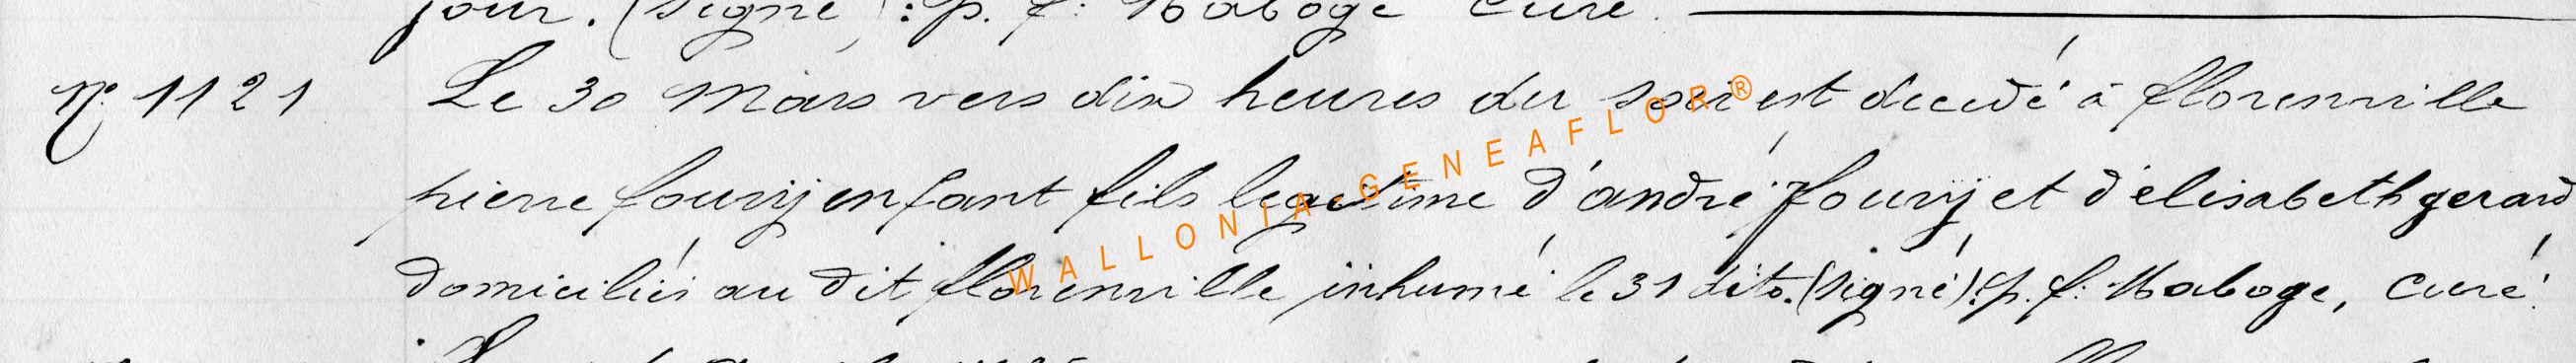 jour. (signé) : p. f: Naboge Curé.
N° 1121 Le 30 Mars vers dix heures du soir est decedé à florenville
pierre fourÿ enfant fils legitime d'andré fourÿ et d'élisabeth gerard
domiciliés au dit florenville inhumé le 31 dito. (signé) : p. f: Naboge, Curé.
WALLONIA GENEAFLOR®